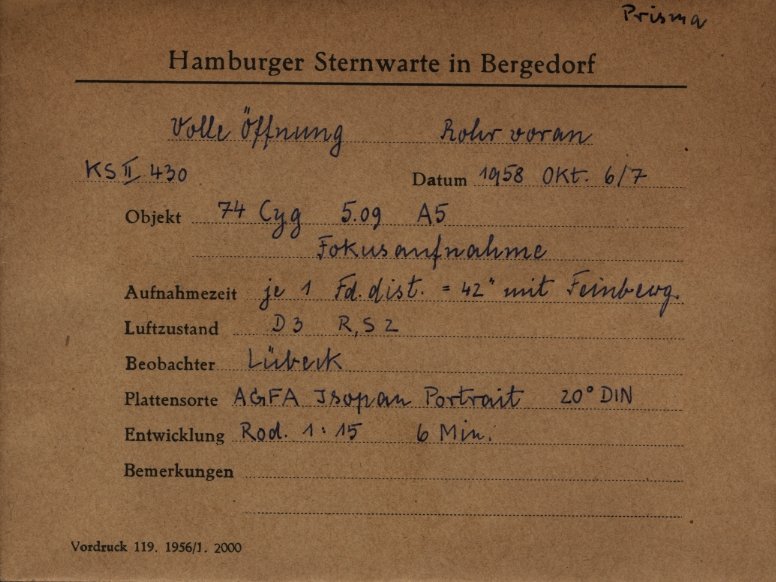 Prisma
Hamburger Sternwarte in Bergedorf
Volle Öffnung Rohr voran
KS II 430 Datum 1958 Okt. 6/7
Objekt 74 Cyg 5.09 A5
Fokusaufnahme
Aufnahmezeit je 1 Fd. dist. = 42" mit Feinbewg.
Luftzustand D3 R, S2
Beobachter Lübeck
Plattensorte AGFA Isopan Portrait 20° DIN
Entwicklung Rod. 1:15 6 Min.
Bemerkungen
Vordruck 119. 1956/1. 2000